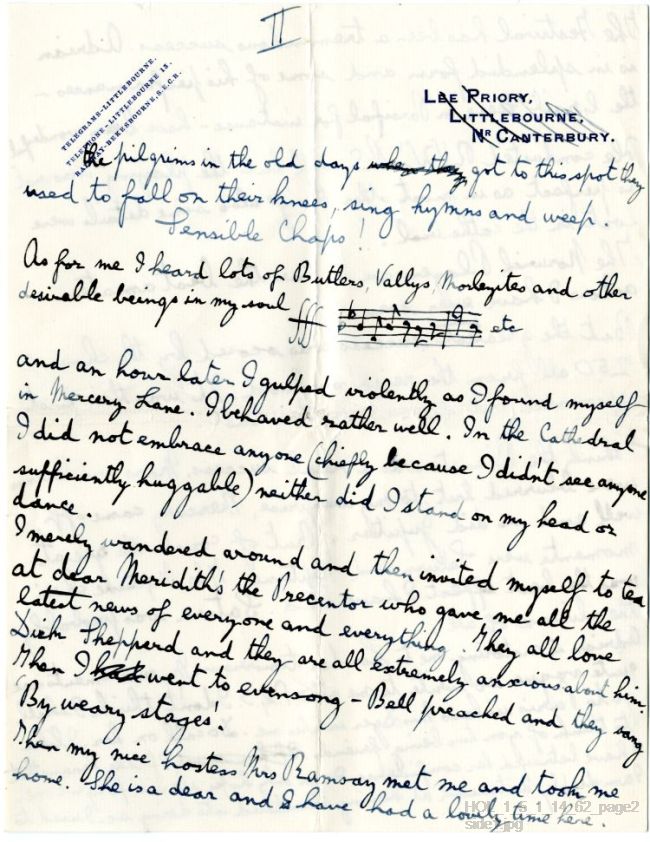 II
TELEGRAMS-LITTLEBOURNE.
TELEPHONE-LITTLEBOURNE 13.
BEKESBOURNE, S.E.C.R.
LEE PRIORY,
LITTLEBOURNE,
NR CANTERBURY.
the pilgrims in the old days got to this spot they
used to fall on their knees, sing hymns and weep.
Sensible Chaps!
As for me I heard lots of Butlers, Vallys, Morleyites and other
desirable beings in my soul fff etc
and an hour later I gulped violently as I found myself
in Mercery Lane. I behaved rather well. In the Cathedral
I did not embrace anyone (chiefly because I didn't see anyone
sufficiently huggable) neither did I stand on my head or
dance.
I merely wandered around and then invited myself to tea
at dear Meridith's the Precentor who gave me all the
latest news of everyone and everything. They all love
Dick Shepperd and they are all extremely anxious about him
Then I went to evensong - Bell preached and they sang
'By weary stages'.
Then my nice hostess Mrs Ramsay met me and took me
home. She is a dear and I have had a lovely time here.
HOL_1_5_1_14_62_page2
side1.jpg